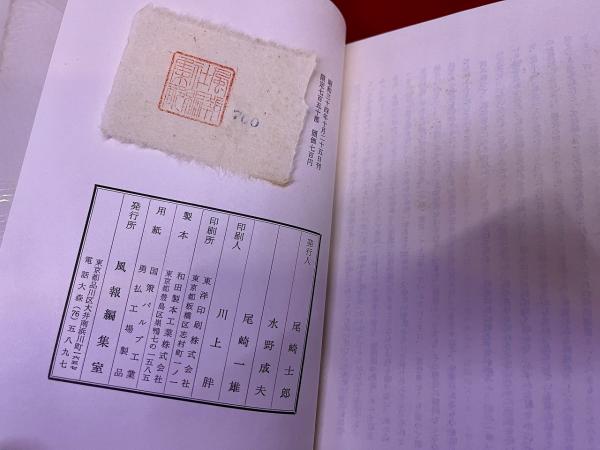 昭和三十四年十月二十五日刊
限定七百五十部 頒価七百円
700
発行人 尾崎士郎
水野成夫
尾崎一雄
印刷人 川上胖
印刷所 東洋印刷株式会社
東京都板橋区志村町一ノ一
製本 和田製本工業株式会社
東京都豊島区巣鴨七の一五八五
用紙 国策パルプ工業
勇払工場製品
発行所 風報編集室
東京都品川区大井南浜川町
電話大森(76)五八九七